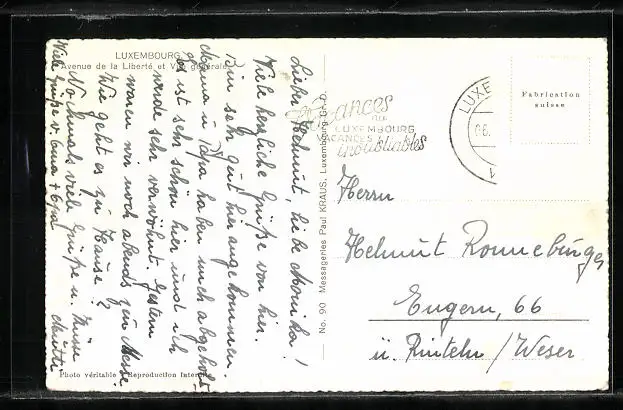 LUXEMBOURG
Avenue de la Liberté et Vue générale
Lieber Helmut, liebe Monika!
Viele herzliche Grüße von hier.
Bin sehr gut hier angekommen.
Mama u. Papa haben mich abgeholt.
Es ist sehr schön hier und ich
werde sehr verwöhnt. Gestern
waren wir noch abends zur Messe.
Wie geht es zu Hause?
Nochmals viele Grüße u. Küsse
Mutti
Viele Grüße v. Oma + Opa
Photo véritable - Reproduction interdite
No. 90 Messageries Paul KRAUS, Luxembourg Gr.-D.
Vacances
au
LUXEMBOURG
VACANCES
inoubliables
LUXE
Fabrication
suisse
Herrn
Helmut Ronneburger
Engern, 66
ü. Rinteln/Weser